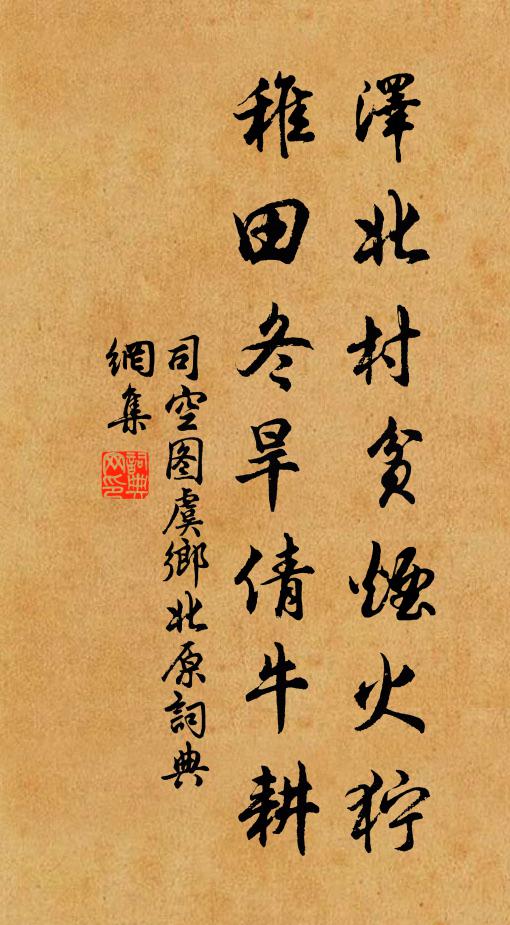 澤北村貧煙火狞
稚田冬旱倩牛耕
司空图虞鄉北原詞典
網集
詞典
网印